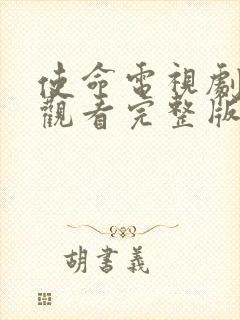 使命電視劇
觀看完整版
胡書義